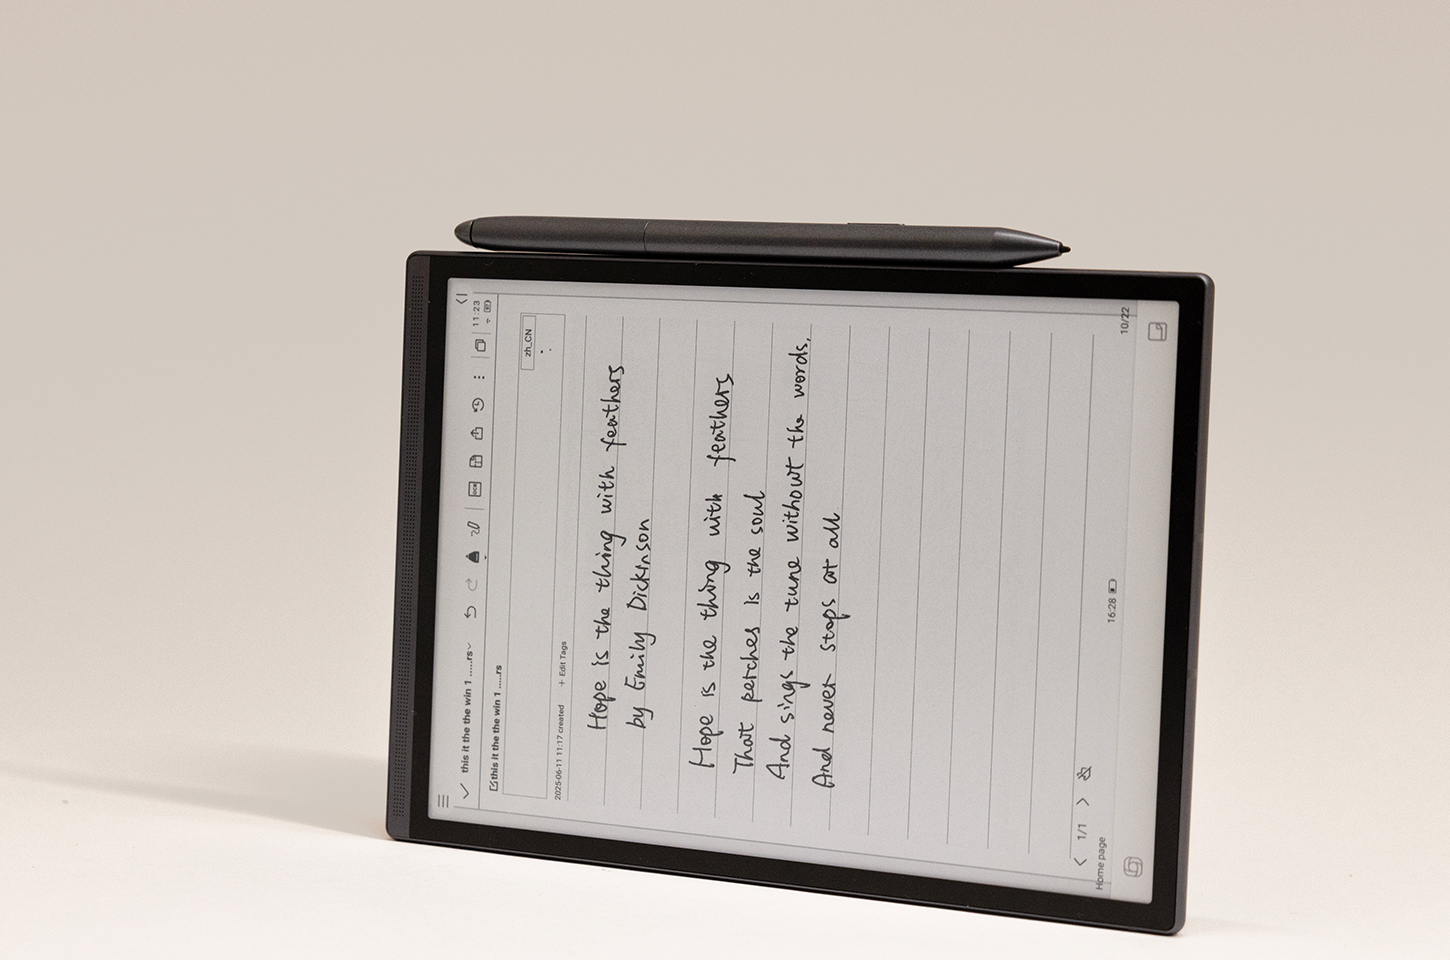 this it the the win 1 .....rs
11:23
this it the the win 1 .....rs
zh_CN
2025-06-11 11:17 created + Edit Tags
Hope is the thing with feathers
by Emily Dickinson
Hope is the thing with feathers
That perches is the soul
And sings the tune without the words,
And never stops at all
< 1/1 >
Home page
16:28
10/22